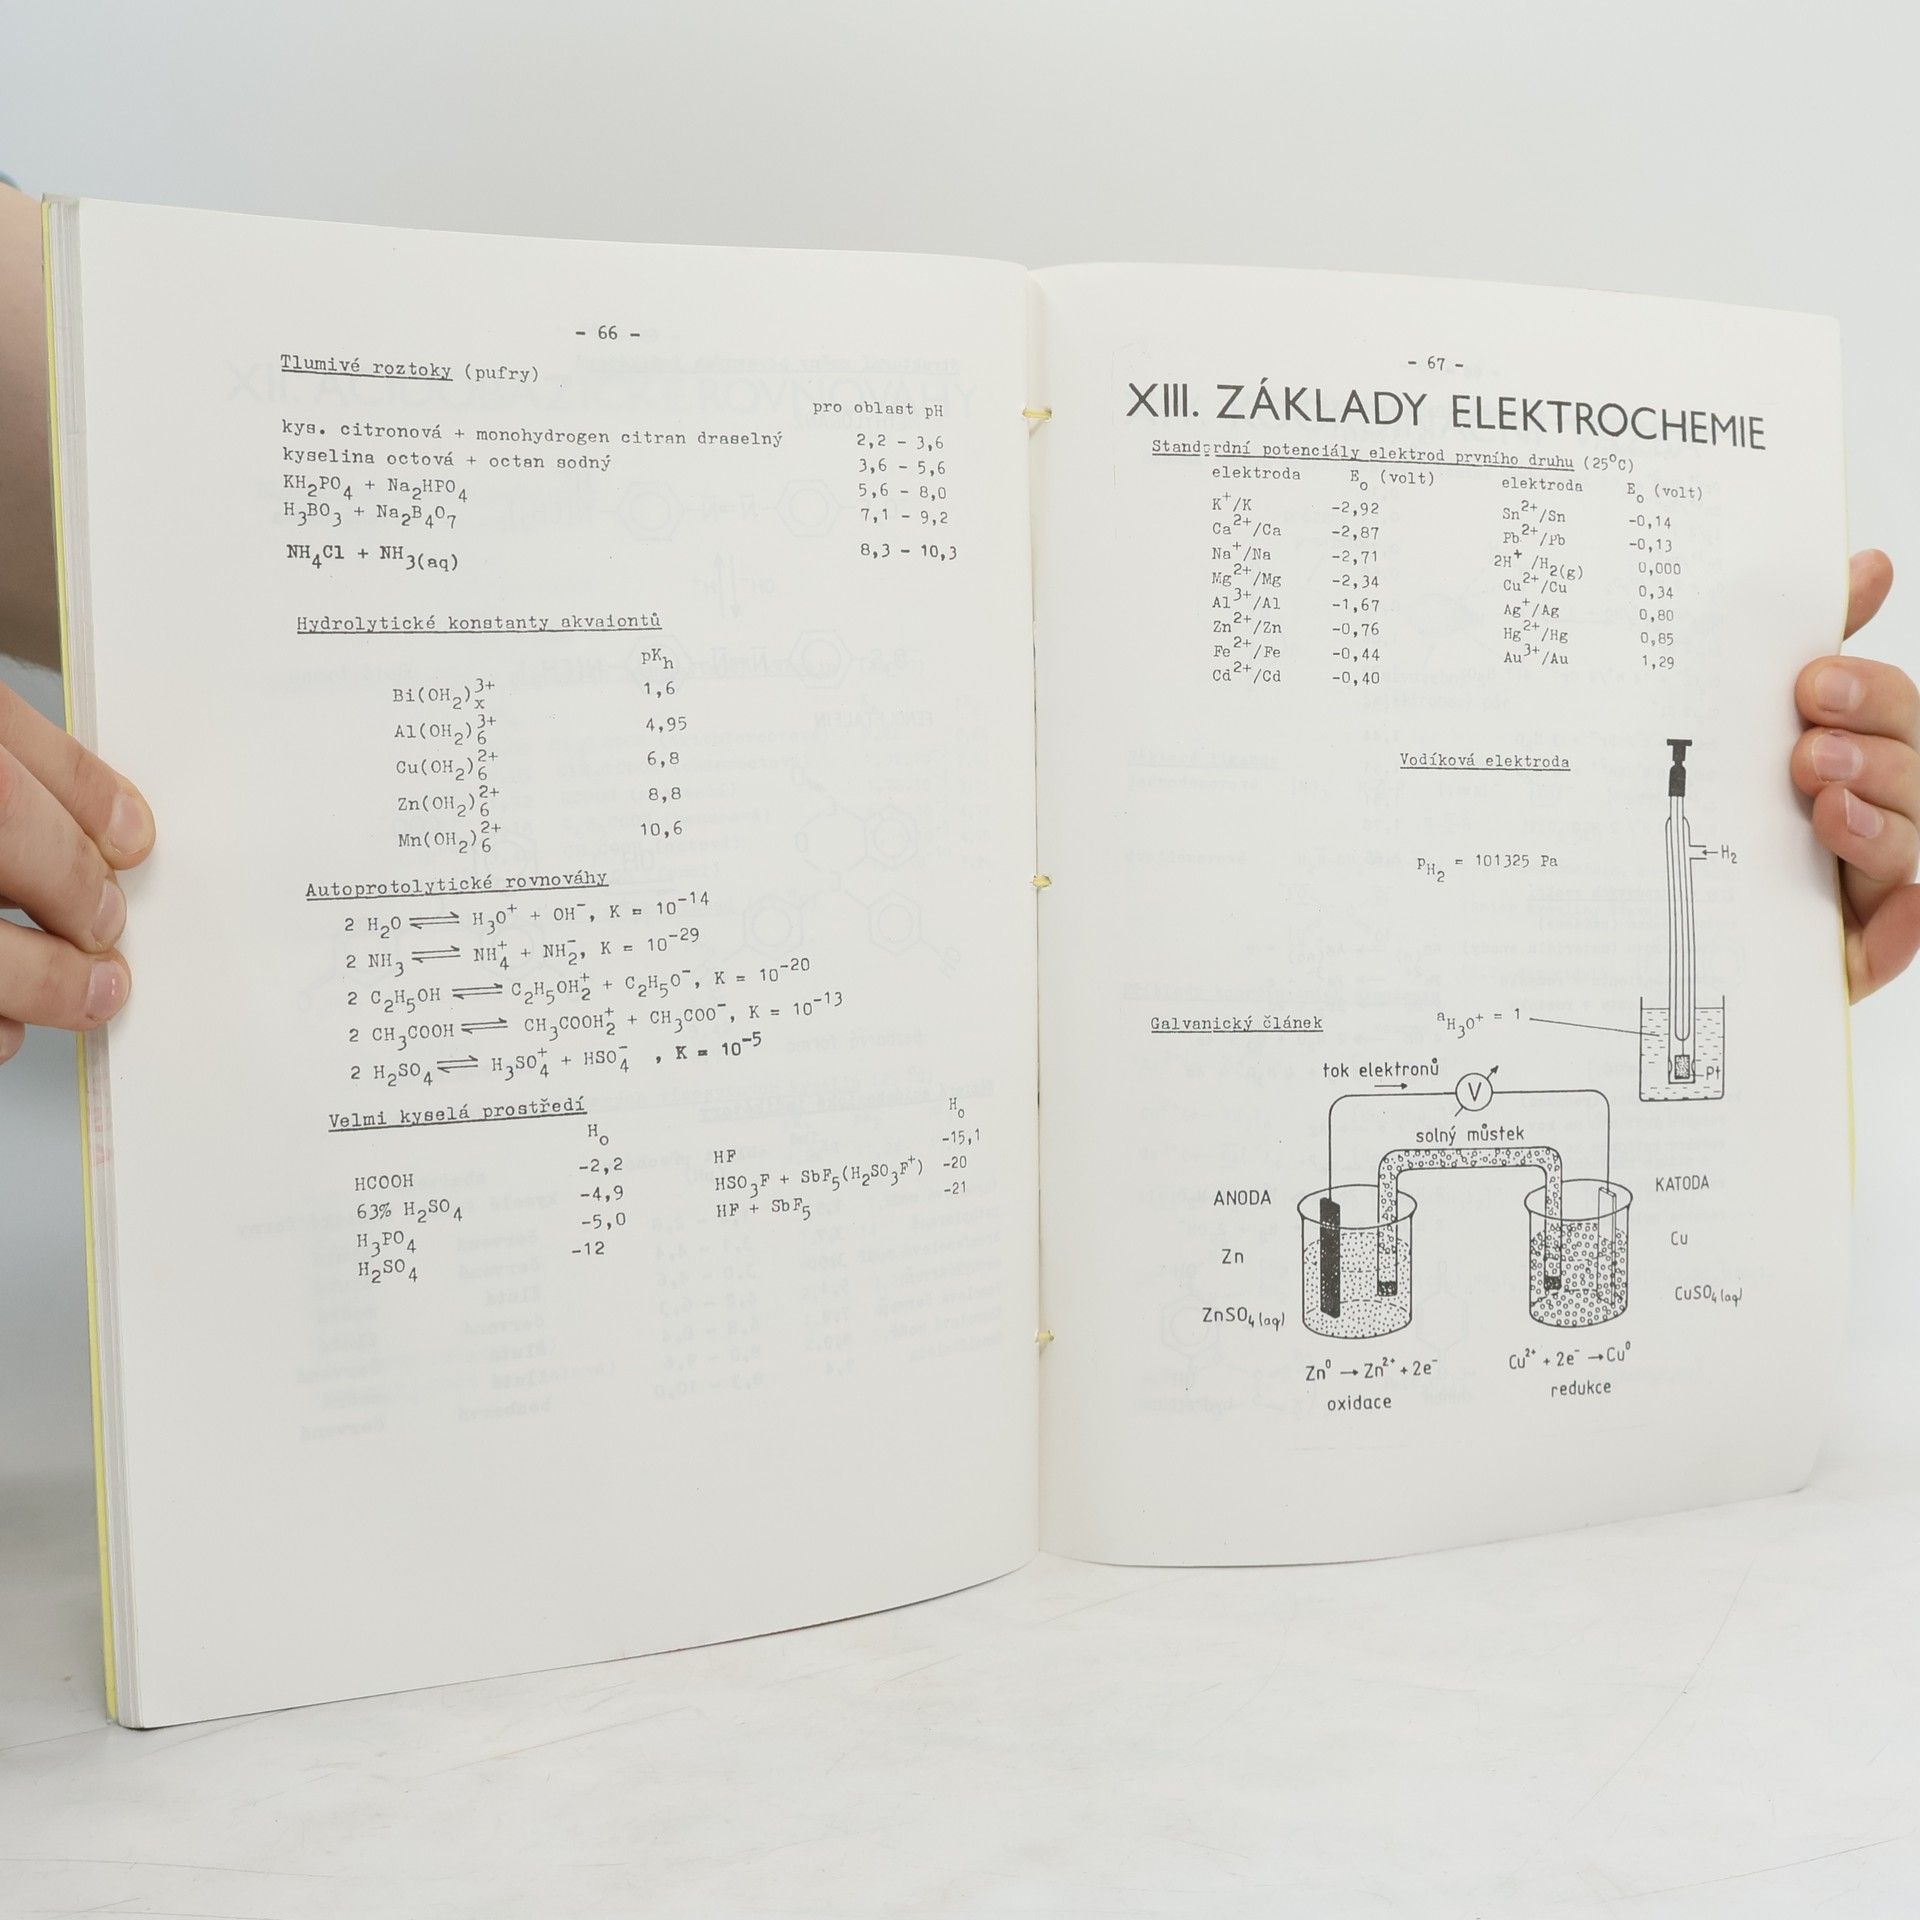 - 66 -
Tlumivé roztoky (pufry)
pro oblast pH
kys. citronová + monohydrogen citran draselný 2,2 - 3,6
kyselina octová + octan sodný 3,6 - 5,6
KH₂PO₄ + Na₂HPO₄ 5,6 - 8,0
H₃BO₃ + Na₂B₄O₇ 7,1 - 9,2
NH₄Cl + NH₃(aq) 8,3 - 10,3
Hydrolytické konstanty akvaiontů
pKₕ
Bi(OH₂)ₓ³⁺ 1,6
Al(OH₂)₆³⁺ 4,95
Cu(OH₂)₆²⁺ 6,8
Zn(OH₂)₆²⁺ 8,8
Mn(OH₂)₆²⁺ 10,6
Autoprotolytické rovnováhy
2 H₂O ⇌ H₃O⁺ + OH⁻, K = 10⁻¹⁴
2 NH₃ ⇌ NH₄⁺ + NH₂⁻, K = 10⁻²⁹
2 C₂H₅OH ⇌ C₂H₅OH₂⁺ + C₂H₅O⁻, K = 10⁻²⁰
2 CH₃COOH ⇌ CH₃COOH₂⁺ + CH₃COO⁻, K = 10⁻¹³
2 H₂SO₄ ⇌ H₃SO₄⁺ + HSO₄⁻ , K = 10⁻⁵
Velmi kyselá prostředí
H₀ H₀
HCOOH -2,2 HF -15,1
63% H₂SO₄ -4,9 HSO₃F + SbF₅(H₂SO₃F⁺) -20
H₃PO₄ -5,0 HF + SbF₅ -21
H₂SO₄ -12
- 67 -
XIII. ZÁKLADY ELEKTROCHEMIE
Standardní potenciály elektrod prvního druhu (25°C)
elektroda E₀ (volt) elektroda E₀ (volt)
K⁺/K -2,92 Sn²⁺/Sn -0,14
Ca²⁺/Ca -2,87 Pb²⁺/Pb -0,13
Na⁺/Na -2,71 2H⁺/H₂(g) 0,000
Mg²⁺/Mg -2,34 Cu²⁺/Cu 0,34
Al³⁺/Al -1,67 Ag⁺/Ag 0,80
Zn²⁺/Zn -0,76 Hg²⁺/Hg 0,85
Fe²⁺/Fe -0,44 Au³⁺/Au 1,29
Cd²⁺/Cd -0,40
Vodíková elektroda
H₂
p_H₂ = 101325 Pa
Galvanický článek
a_H₃O⁺ = 1
Pt
tok elektronů
V
solný můstek
ANODA
KATODA
Zn
Cu
ZnSO₄(aq)
CuSO₄(aq)
Zn⁰ → Zn²⁺ + 2e⁻
Cu²⁺ + 2e⁻ → Cu⁰
oxidace
redukce